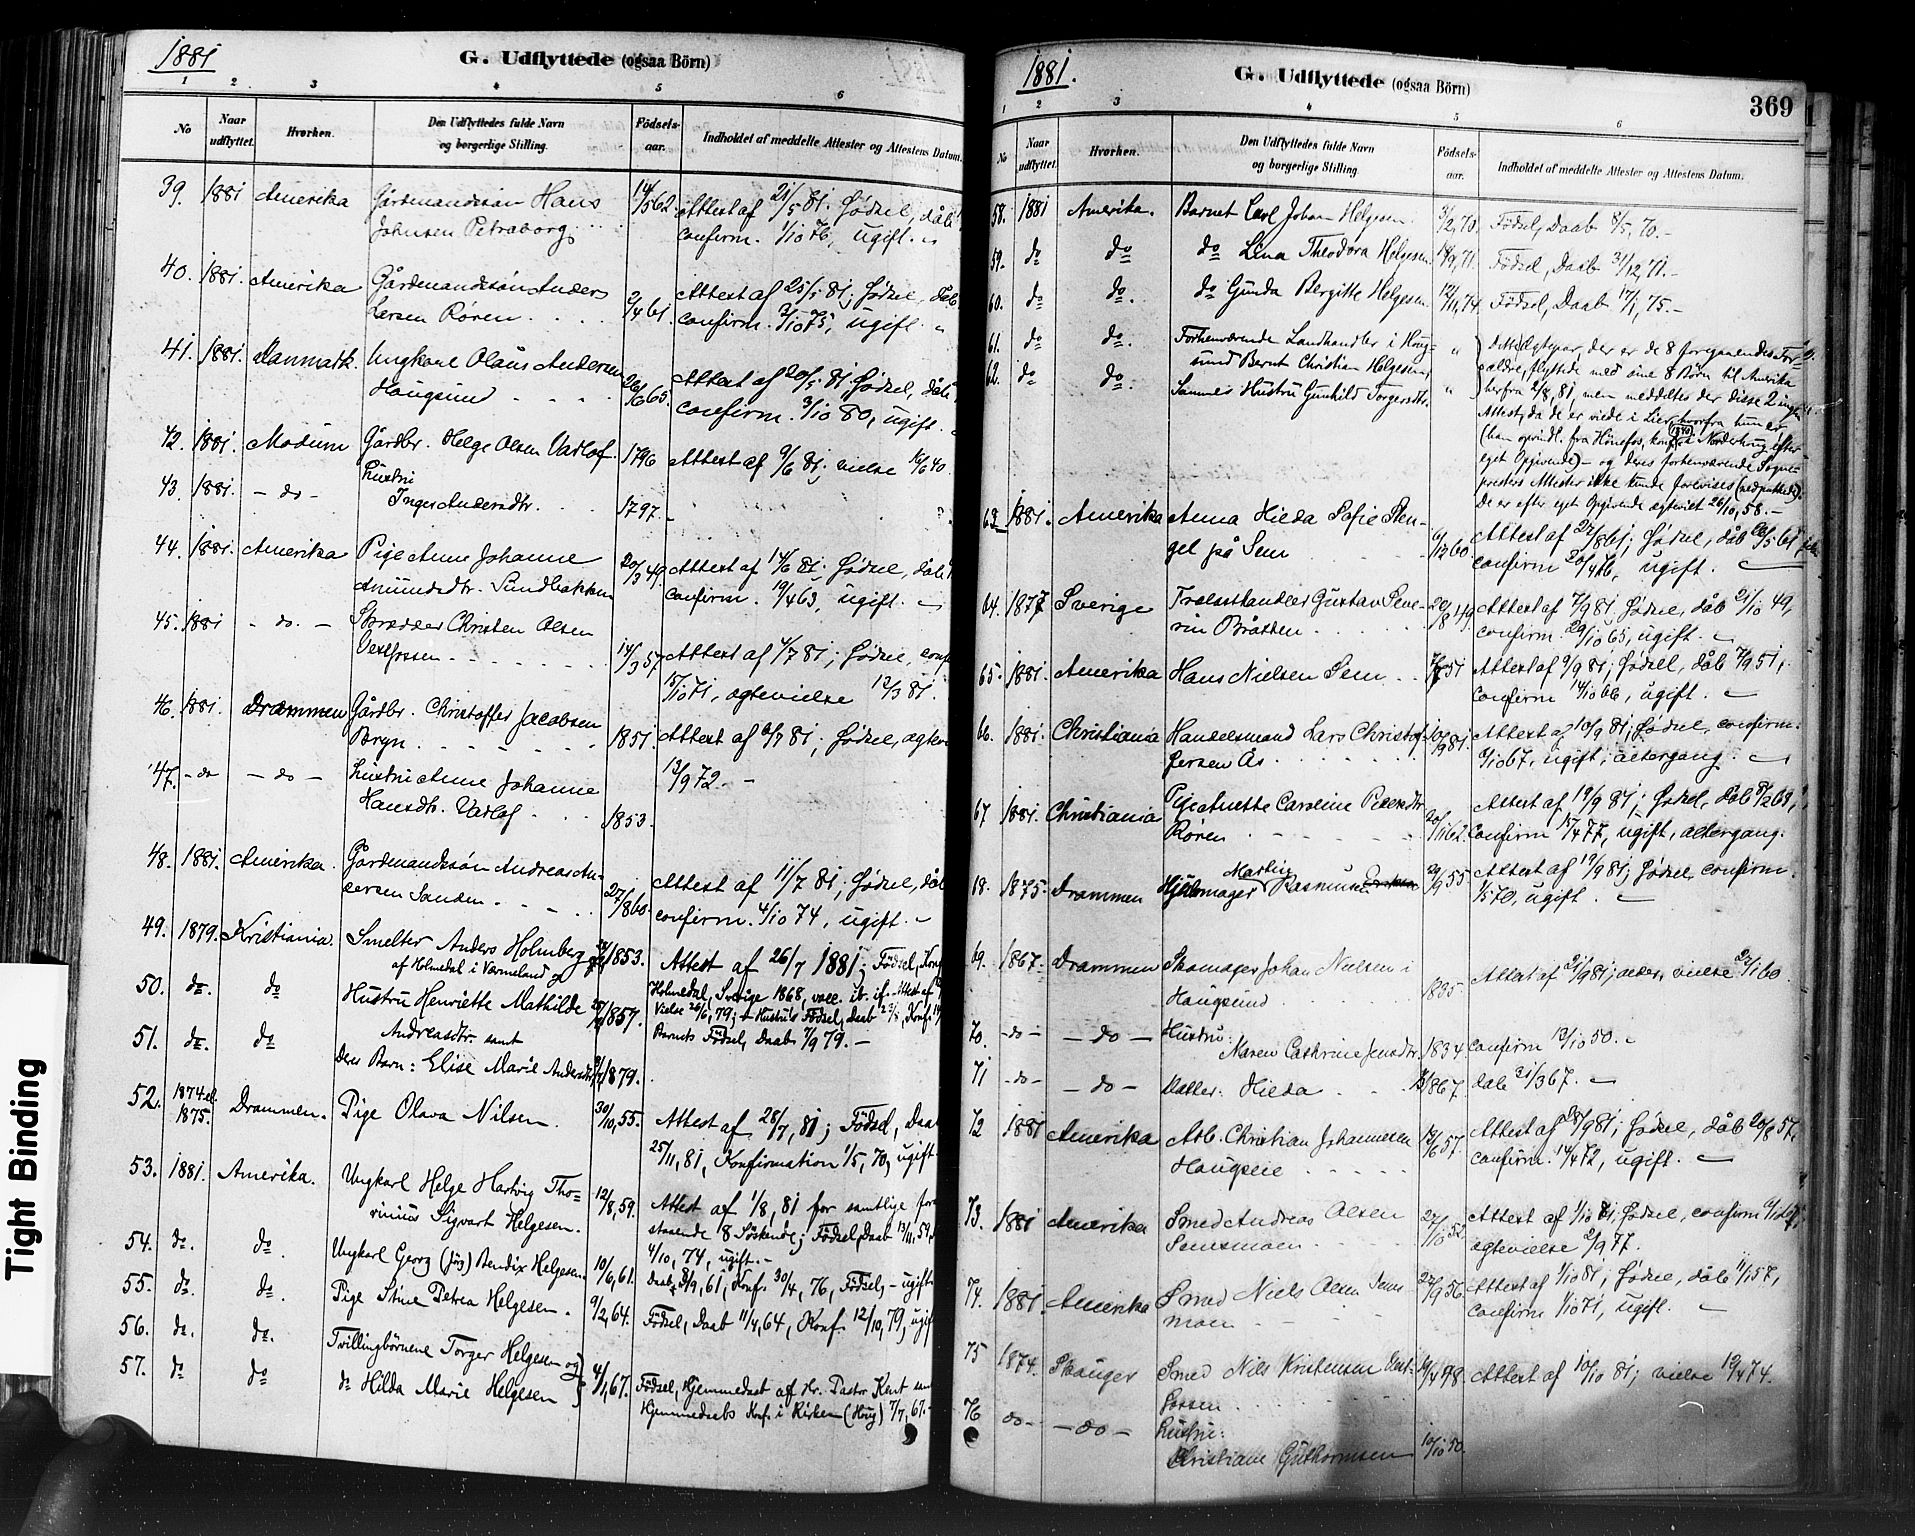 1881
G. Udflyttede (ogsaa Börn)
1 2 3 4 5 6
No
Naar udflyttet.
Hvorhen.
Den Udflyttedes fulde Navn og borgerlige Stilling.
Födsels-aar.
Indholdet af meddelte Attester og Attestens Datum.
39. 1881 Amerika Gårdmandssøn Hans 14/5 62. Attest af 21/5 81. Fødsel, dåb
Johnsen Petraborg. confirm. 1/10 76, ugift.
40. 1881. Amerika Gårdmandssøn Anders 2/4 61. Attest af 25/5 81; Fødsel, dåb
Larsen Røren . . . . confirm. 3/10 75, ugift.
41. 1881. Danmark. Ungkarl Olaus Andersen 26/6 65. Attest af 20/5 81. Fødsel, dåb
Hougsund . . . . confirm. 3/10 80, ugift.
42. 1881. Modum Gårdbr. Helge Olsen Varlof. 1796 Attest af 9/6 81; vielse 16/6 40.
43. 1881. - do - Hustru
Inger Andersdtr. . . 1797.
44. 1881. Amerika Pige Anne Johanne 20/3 49. Attest af 14/6 81. Fødsel, dåb
Amundsdtr. Sundbakken confirm. 19/4 63, ugift.
45. 1881 - do. - Skrædder Christen Olsen
Vestfossen . . . 14/3 57. Attest af 4/7 81; Fødsel, conf
15/10 71, ægtevielse 12/3 81.
46. 1881. Drammen Gårdbr. Christoffer Jacobsen
Bryn . . . 1851. Attest af 6/7 81; Fødsel, ægtev
47. - do - do - Hustru Anne Johanne 13/9 72. -
Hansdtr. Varlof . . 1853.
48. 1881. Amerika. Gårdmandssøn Andreas An-
dersen Sanden . . . 27/8 60. Attest af 11/7 81; Fødsel, dåb
confirm. 4/10 74, ugift. -
49. 1879. Kristiania. Smelter Anders Holmberg 1853. Attest af 26/7 1881; Födsel, Konf
af Holmedal i Värmeland og
50. do. do Hustru Henriette Mathilde 1857. Holmedal, Sverige 1868, vacc. ib. if. Attest af
Andreasdtr. samt Vielse 26/6, 79; - Hustrus Födsel, Daab, Konf.
51. do. do Deres Barn: Elise Marie Andersdtr. 1879. Barnets Födsel, Daab 7/9 79. -
52. 1874 el. 1875. Drammen. Pige Olava Nilsen. 30/10, 55. Attest af 28/7, 81; Födsel, Daab
25/11, 81, Konfirmation 1/5, 70, ugift
53. 1881. Amerika. Ungkarl Helge Hartvig Tho=
rinius Sigvart Helgesen. 12/8, 59. Attest af 1/8, 81 for samtlige for
staaende 8 Söskende; Födsel, Daab 13/11, 59,
4/10, 74, ugift. -
54. do. do. Ungkarl Georg (Jörg) Bendix Helgesen. 10/6, 61. Daab 8/9, 61, Konf. 30/4, 76, Födsel, - ugift
55. do. do. Pige Stine Petrea Helgesen. 9/2, 64. Födsel, Daab 11/4, 64, Konf. 12/10, 79, ugift
56. do. do. Tvillingbörnene Torger Helgesen og
57. do do do Hilda Marie Helgesen } 4/1, 67. Födsel, Hjemmedaab af Hr. Pastor Kent samt
Hjemmedaabs Konf. i Kirken (Houg) 7/7, 67. -
1881.
G. Udflyttede (ogsaa Börn)
369
1 2 3 4 5 6
No
Naar udflyttet.
Hvorhen.
Den Udflyttedes fulde Navn og borgerlige Stilling.
Födsels-aar.
Indholdet af meddelte Attester og Attestens Datum.
58. 1881 Amerika. Barnet Carl Johan Helgesen 3/2, 70. Födsel, Daab 8/5, 70. -
59. do do do Lina Theodora Helgesen 14/9, 71. Födsel, Daab 31/12, 71. -
60. do do. do Gunda Bergitte Helgesen 12/11, 74. Födsel, Daab 17/1, 75. -
61. do do. Forhenværende Landhandler i Houg= " Dette Ægtepar, der er de 8 foregaaendes For=
62. do do. sund Bernt Christian Helgesen, ældre, flyttede med sine 8 Börn til Amerika
Sammes Hustru Gunhild Torgersdtr. " herfra 2/8, 81, men meddeltes der disse 2 ingen
Attest, da de er viede i Lier, hvorfra hun er
(han oprindl. fra Hönefos, konf. 1840 Norderhoug efter
eget Opgivende) - og deres forhenværende Sogne=
presters Attester ikke kunde forevises (nedpakkede).
De er efter eget Opgivende ægteviet 26/10, 58. -
63. 1881. Amerika Anna Hilda Sofie Sten-
gel på Sem . . 6/12 60. Attest af 22/8 81; Fødsel, dåb 26/5 61
confirm 20/4 76, ugift.
64. 1877 Sverige Trælasthandler Gustav Seve-
rin Bråtden . . . 20/8 49. Attest af 7/9 81. Fødsel, dåb 21/10 49,
confirm. 29/10 65, ugift.
65. 1881. Amerika Hans Nielsen Sem . . 51 Attest af 9/9 81; Fødsel, dåb 7/9 51,
confirm 14/10 66, ugift.
66. 1881. Christiania Handelsmand Lars Christof-
fersen Ås . . . Attest af 10/9 81; Fødsel, confirm.
6/10 67, ugift, altergang.
67 1881. Christiania Pige Anette Caroline Pedersdtr.
Røren . . . 20/11 62. Attest af 19/9 81; Fødsel, dåb 8/2 63,
confirm 15/4 77, ugift, altergang.
68. 1875. Drammen Hjulmager Martin Rasmussen 29/9 55 Attest af 19/9 81; Fødsel, confirm.
1/5 70, ugift.
69. 1867. Drammen Skomager Johan Nielsen i
Hougsund . . . 1835. Attest af 21/9 81; vielse 22/1 60.
70. - do - - do - Hustru:
Maren Cathrine Jensdtr. 1834 Confirm 13/10 50.
71 - do - - do - Datter: Hilda . . 1867. dåb 31/3 67.
72 1881 Amerika Arb. Christian Johannesen
Hougseie . . . 13/6 57. Attest af 28/9 81; Fødsel, dåb 20/8 57,
confirm. 14/4 72, ugift.
73. 1881 Amerika Smed Andreas Olsen
Semsmoen . . 27/10 52. Attest af 1/10 81; Fødsel, confirm
ægtevielse 2/9 77.
74. 1881 Amerika Smed Niels Olsen Sems-
moen . . 22/9 56. Attest af 1/10 81; Fødsel, dåb 11/1 57,
confirm 1/10 71, ugift.
75 1874. Skouger Smed Nils Kristensen Vest-
fossen . . . 19/4 48. Attest af 10/10 81; vielse 19/4 74.
76 do - - do - Hustru:
Christiane Guthormsen 10/10 50.
Tight Binding